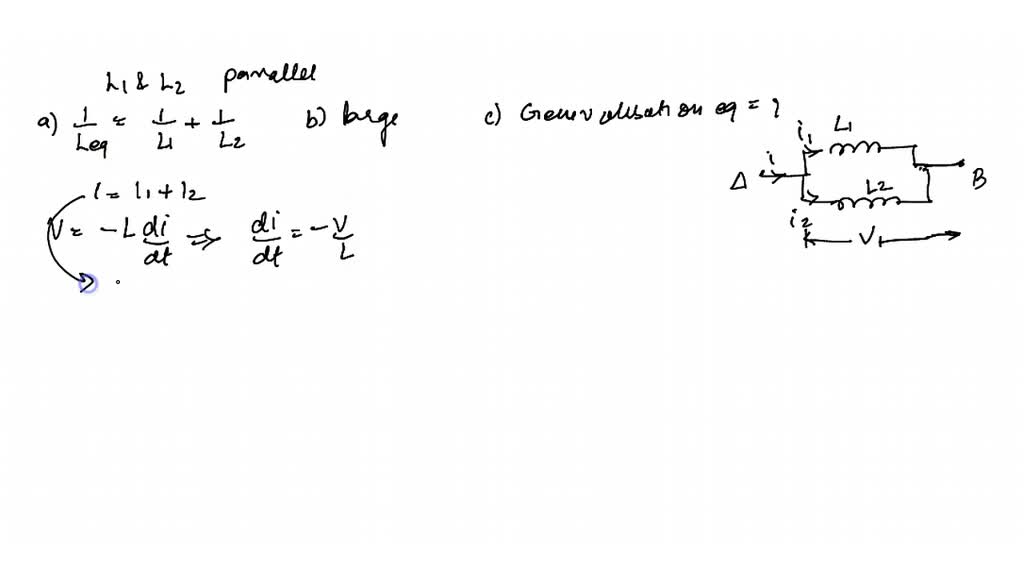 L1 & L2 parallel
a) 1/Leq = 1/L1 + 1/L2 b) large c) Generalisation eq = ?
i = i1 + i2
V = -L di/dt ⇒ di/dt = -V/L
i i1 L1
A L2 B
i2 V